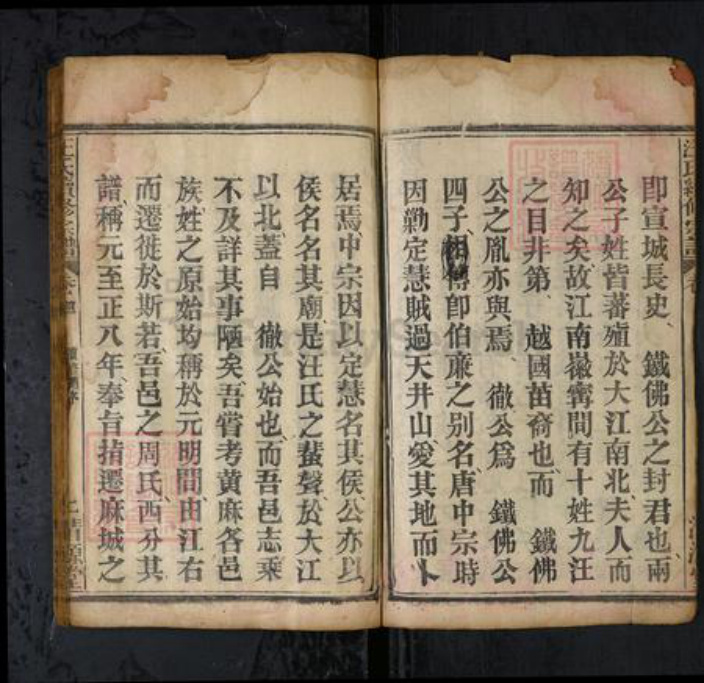 卽宣城長史 鐵佛公之封君也兩
公子姓皆蕃殖於大江南北夫人而
知之矣故江南嶽甯間有十姓九汪
之目非第 越國苗裔也而 鐵佛
公之胤亦與焉 徹公爲 鐵佛公
四子相傳卽伯廉之别名唐中宗時
因勦定慧賊過天井山愛其地而卜
居焉中宗因以定慧名其侯公亦以
侯名名其廟是汪氏之蜚聲於大江
以北蓋自 徹公始也而吾邑志乘
不及詳其事陋矣吾嘗考黄麻各邑
族姓之原始均稱於元明間由江右
而遷徙於斯若吾邑之周氏西分其
譜稱元至正八年奉旨指遷麻城之
汪氏續修宗譜 卷